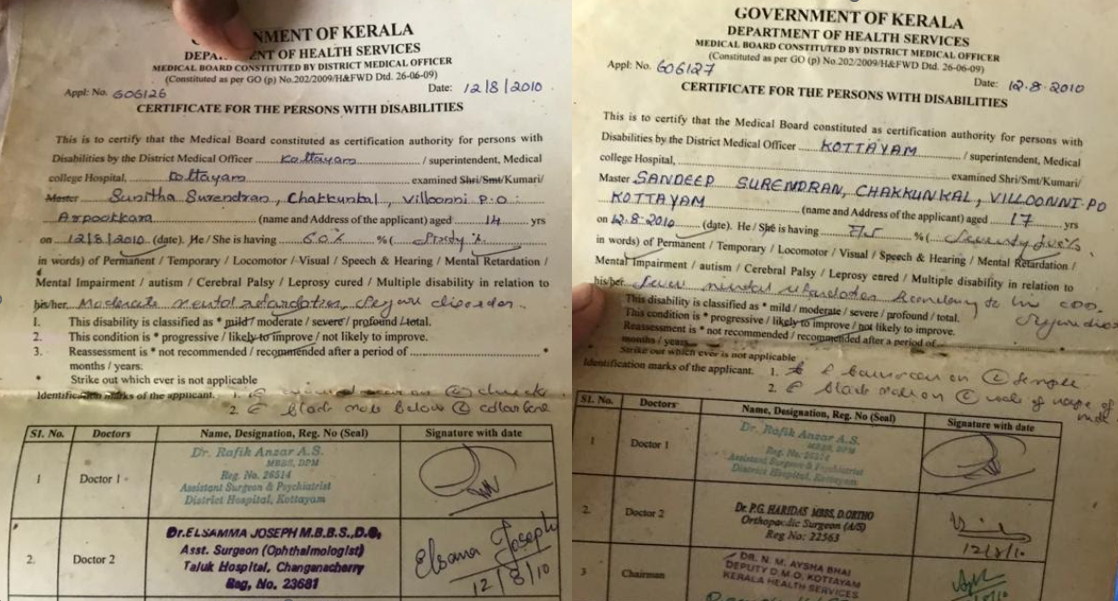 NMENT OF KERALA
DEPA MENT OF HEALTH SERVICES
MEDICAL BOARD CONSTITUTED BY DISTRICT MEDICAL OFFICER
(Constituted as per GO (p) No.202/2009/H&FWD Dtd. 26-06-09)
Appl: No. 606126 Date: 12/8/2010
CERTIFICATE FOR THE PERSONS WITH DISABILITIES
This is to certify that the Medical Board constituted as certification authority for persons with
Disabilities by the District Medical Officer Kottayam / superintendent, Medical
college Hospital, Kottayam examined Shri/Smt/Kumari/
Master Sunitha Surendran, Chakkunkal, Villoonni P.O.
Arpookkara (name and Address of the applicant) aged 14 yrs
on 12/8/2010 (date). He / She is having 60% %(
in words) of Permanent / Temporary / Locomotor / Visual / Speech & Hearing / Mental Retardation /
Mental Impairment / autism / Cerebral Palsy / Leprosy cured / Multiple disability in relation to
his/her Moderate mental retardation, disorder
1. This disability is classified as * mild / moderate / severe / profound / total.
2. This condition is * progressive / likely to improve / not likely to improve.
3. Reassessment is * not recommended / recommended after a period of *
months / years.
* Strike out which ever is not applicable
Identification marks of the applicant. 1. on cheek
2. black mole below collar bone
Sl. No. Doctors Name, Designation, Reg. No (Seal) Signature with date
1 Doctor 1 Dr. Rafik Anzar A.S.
MBBS, DPM
Reg. No. 26514
Assistant Surgeon & Psychiatrist
District Hospital, Kottayam
2. Doctor 2 Dr.ELSAMMA JOSEPH M.B.B.S.,D.O,
Asst. Surgeon (Ophthalmologist)
Taluk Hospital, Changanacherry
Reg, No. 23681
Joseph
12/8/10
GOVERNMENT OF KERALA
DEPARTMENT OF HEALTH SERVICES
MEDICAL BOARD CONSTITUTED BY DISTRICT MEDICAL OFFICER
(Constituted as per GO (p) No.202/2009/H&FWD Dtd. 26-06-09)
Appl: No. 606127 Date: 12.8.2010
CERTIFICATE FOR THE PERSONS WITH DISABILITIES
This is to certify that the Medical Board constituted as certification authority for persons with
Disabilities by the District Medical Officer KOTTAYAM / superintendent, Medical
college Hospital, examined Shri/Smt/Kumari/
Master SANDEEP SURENDRAN, CHAKKUNKAL, VILLOONNI-PO
KOTTAYAM (name and Address of the applicant) aged 17 yrs
on 12.8.2010 (date). He / She is having %(
in words) of Permanent / Temporary / Locomotor / Visual / Speech & Hearing / Mental Retardation /
Mental Impairment / autism / Cerebral Palsy / Leprosy cured / Multiple disability in relation to
his/her mental retardation Secondary to
This disability is classified as * mild / moderate / severe / profound / total.
This condition is * progressive / likely to improve / not likely to improve.
Reassessment is * not recommended / recommended after a period of
months / years.
Strike out which ever is not applicable
Identification marks of the applicant. 1. on temple
2. black mole on of nape of
Sl. No. Doctors Name, Designation, Reg. No (Seal) Signature with date
1 Doctor 1 Dr. Rafik Anzar A.S.
MBBS, DPM
Reg. No. 26514
Assistant Surgeon & Psychiatrist
District Hospital, Kottayam
2. Doctor 2 Dr. P.G. HARIDAS MBBS, D.ORTHO
Orthopaedic Surgeon (A/S)
Reg No: 22563
12/8/10
3 Chairman DR. N. M. AYSHA BHAI
DEPUTY D.M.O. KOTTAYAM
KERALA HEALTH SERVICES